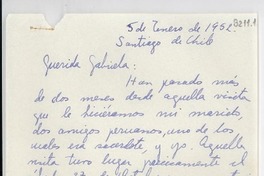 5 de Enero de 1952.
Santiago de Chile
Querida Gabriela:
Han pasado más
de dos meses desde aquella visita
que le hiciéramos mi marido,
dos amigos peruanos, uno de los
cuales era sacerdote, y yo. Aquella
visita tuvo lugar precisamente el